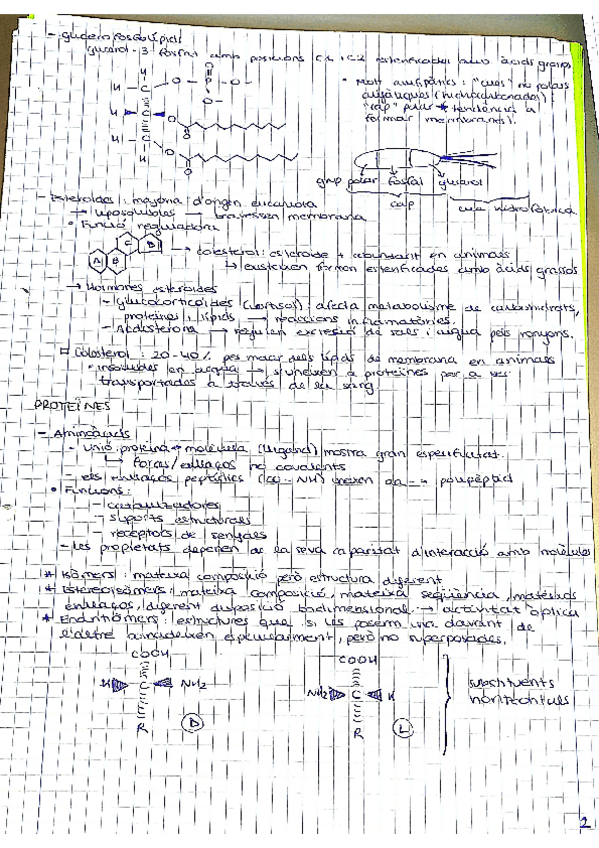 - glicerofosfolípids
glicerol-3-fosfat amb posicions C1 i C2 esterificades amb àcids grassos
• Molt amfipàtics: "cues" no polars
allifàtiques (hidrocarbonades) i
"cap" polar → tendència a
formar membranes).
H
H - C - O - P - O-
O
O-
H C O
O
H - C - O
O
H
grup polar fosfat glicerol
cap cua hidrofòbica
- Esteroides: majoria d'origen eucariota
→ liposolubles → travessen membrana
• Funció reguladora
A B C D
→ colesterol: esteroide + abundant en animals
→ existeixen formes esterificades amb àcids grassos
→ Hormones esteroides
- Glucocorticoides (cortisol): afecta metabolisme de carbohidrats,
proteïnes i lípids → reaccions inflamatòries.
- Aldosterona → regulen excresió de sals i aigua pels ronyons.
Colesterol: 20-40% per major dels lípids de membrana en animals
• insolubles en aigua → s'uneixen a proteïnes per a ser
transportades a través de la sang
PROTEÏNES
- Aminoàcids
- Unió proteïna → molècula (lligand) mostra gran especificitat.
→ forces/enllaços no covalents
- els enllaços peptídics (CO-NH) uneixen aa → polipèptid
• Funcions:
- catalitzadores
- suports estructurals
- receptors de senyals
- Les propietats depenen de la seva capacitat d'interacció amb molècules
* Isòmers: mateixa composició però estructura diferent
* Estereoisòmers: mateixa composició, mateixa seqüència, mateixos
enllaços, diferent disposició tridimensional → activitat òptica
* Enantiòmers: estructures que si les posem una davant de
l'altre coincideixen especularment, però no superposades.
COOH
H C NH2
R
D
COOH
NH2 C H
R
L
substituents
horitzontals
2